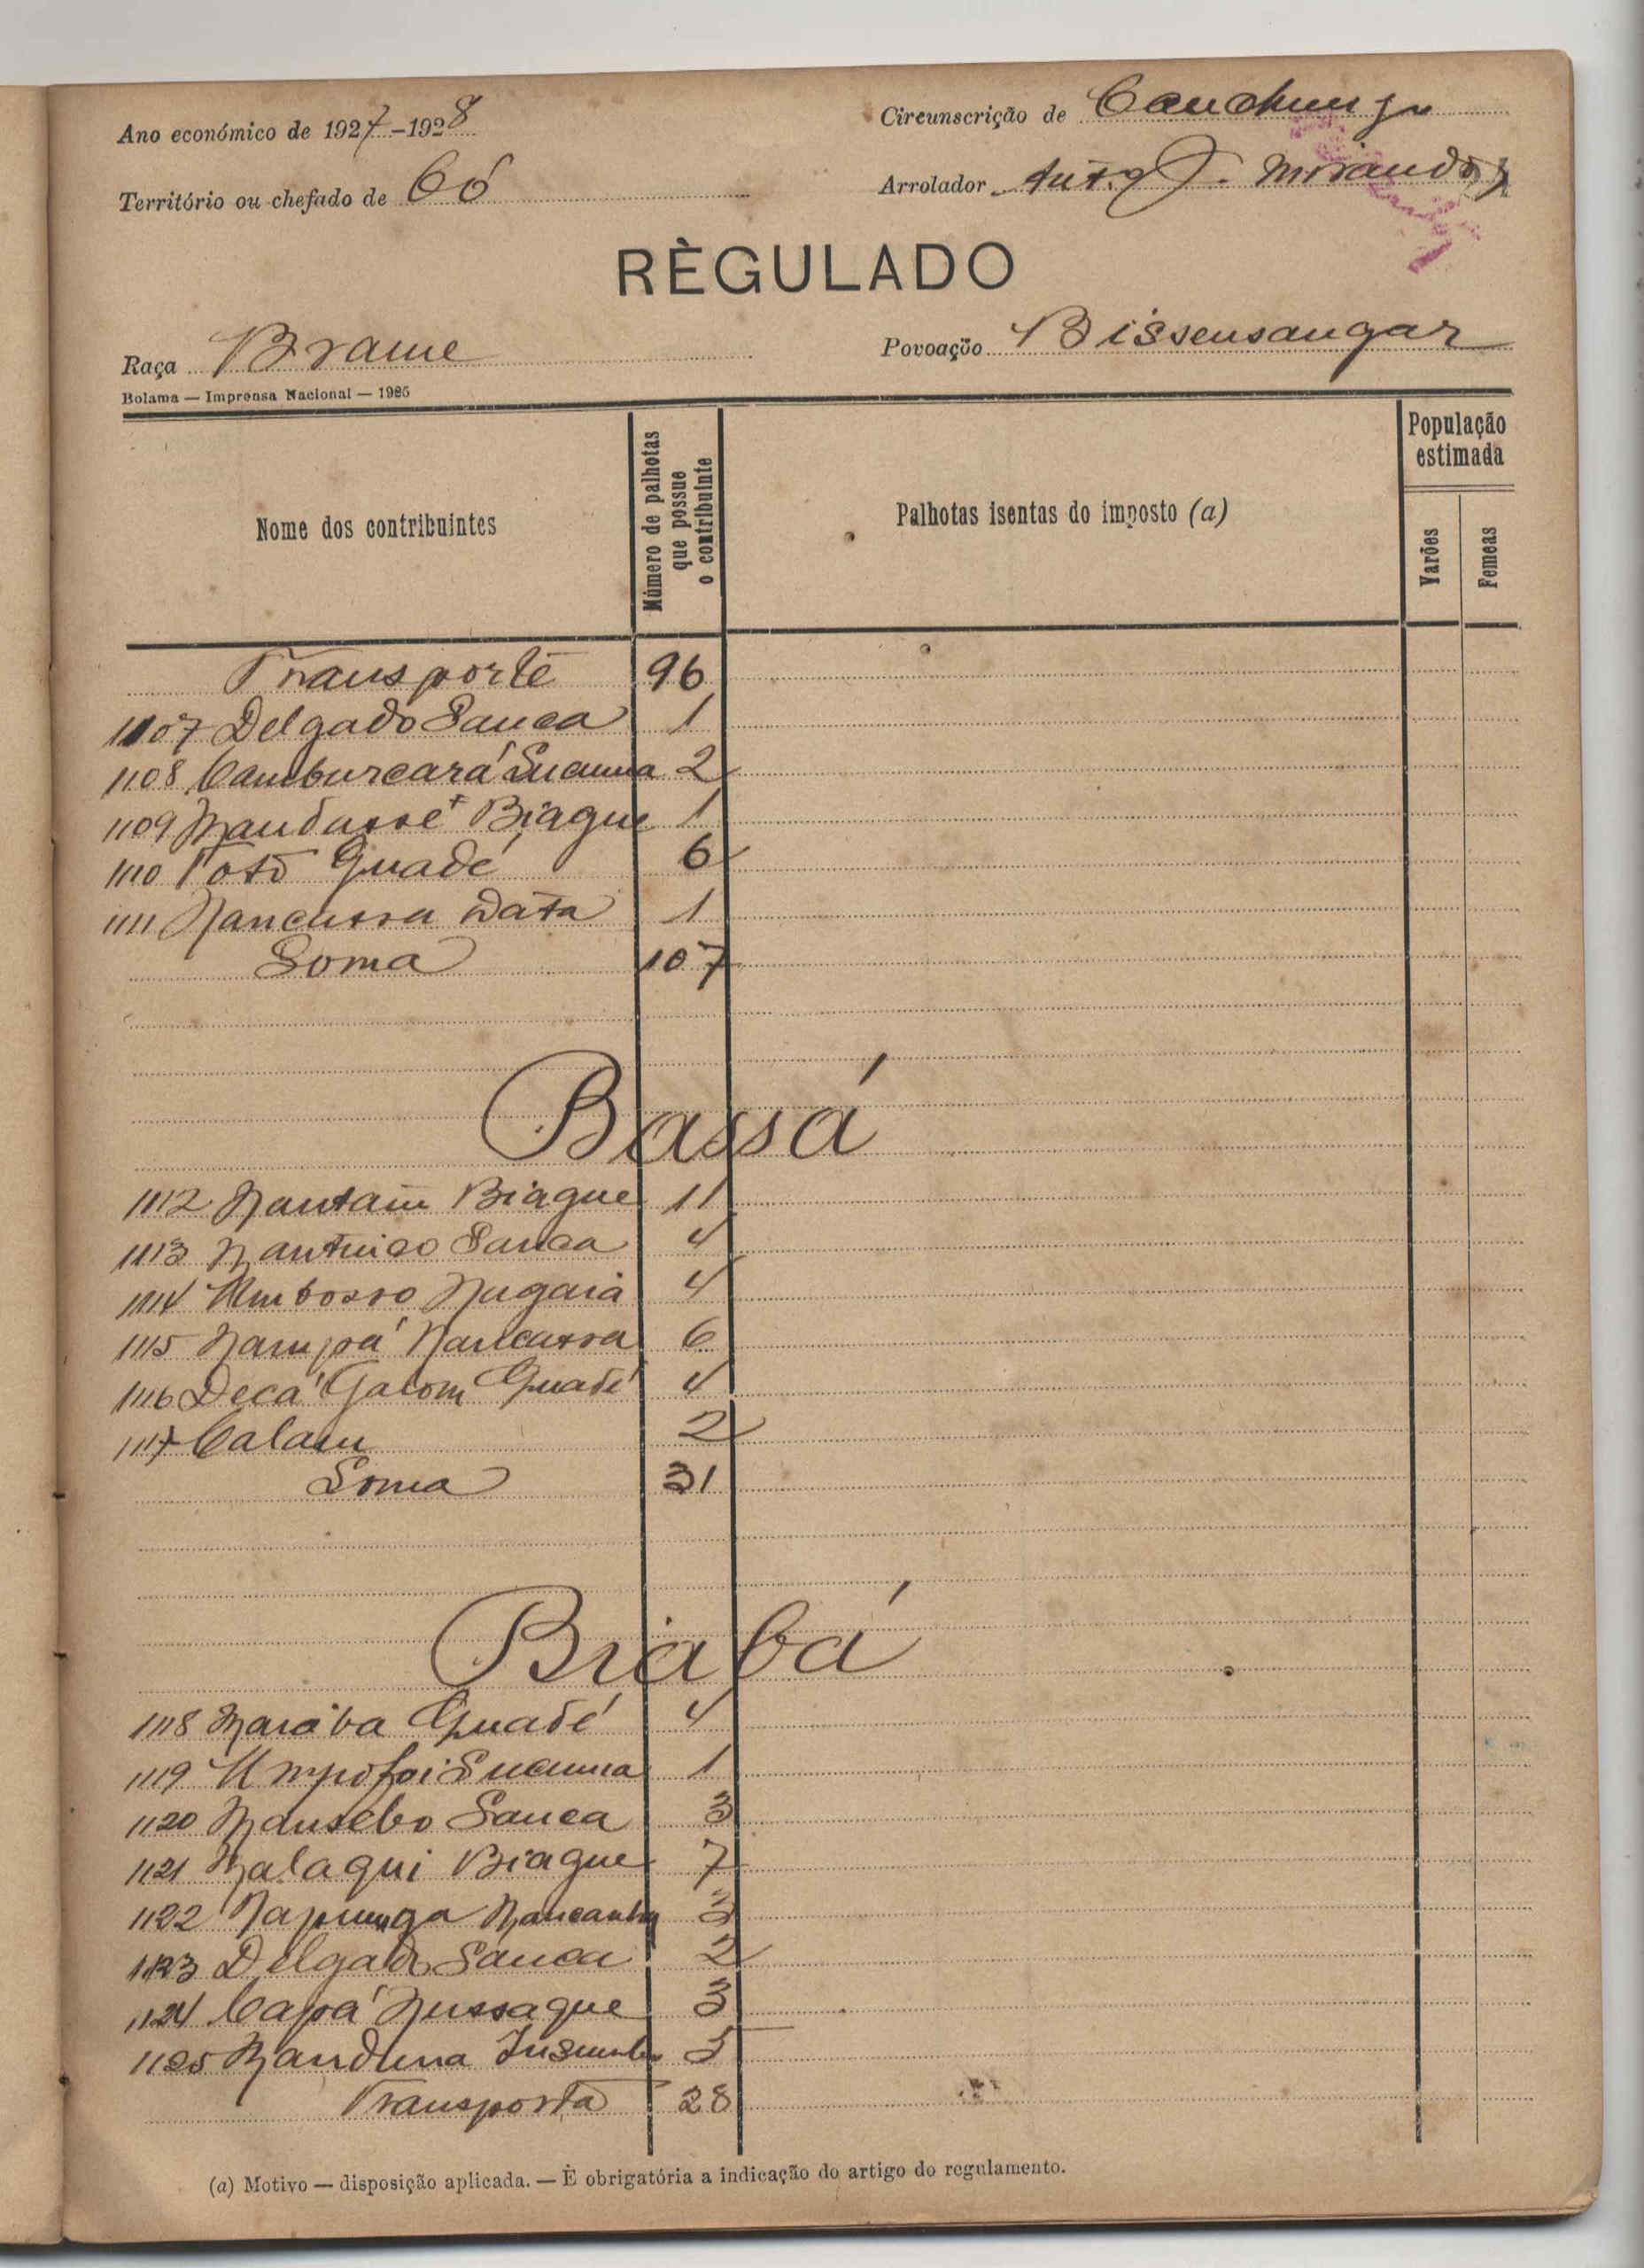 Ano económico de 1927-1928
Circunscrição de Canchungo
Território ou chefado de Có
Arrolador Antº J. Miranda
RÈGULADO
Raça Brame
Povoação Bissensangar
Bolama — Imprensa Nacional — 1925
Nome dos contribuintes
Número de palhotas que possue o contribuinte
Palhotas isentas do imposto (a)
População estimada
Varões
Femeas
Transporte 96
1107 Delgado Sanca 1
1108 Camburcará Sucuma 2
1109 Biague 1
1110 Totó Guadé 6
1111 Nancassa Data 1
Soma 107
Bassá
1112 Nantam Biague 11
1113 Sanca 4
1114 Umbosso Nugaia 4
1115 Nampá Nancassa 6
1116 Decá Galom Guadé 4
1117 Calam 2
Soma 31
Biabá
1118 Naraba Guadé 4
1119 Umpofoi Sucuma 1
1120 Nansebo Sanca 3
1121 Nalaqui Biague 7
1122 Napunga 3
1123 Delgado Sanca 2
1124 Capá Nussaque 3
1125 Nanduna 5
Transporta 28
(a) Motivo — disposição aplicada. — È obrigatória a indicação do artigo do regulamento.